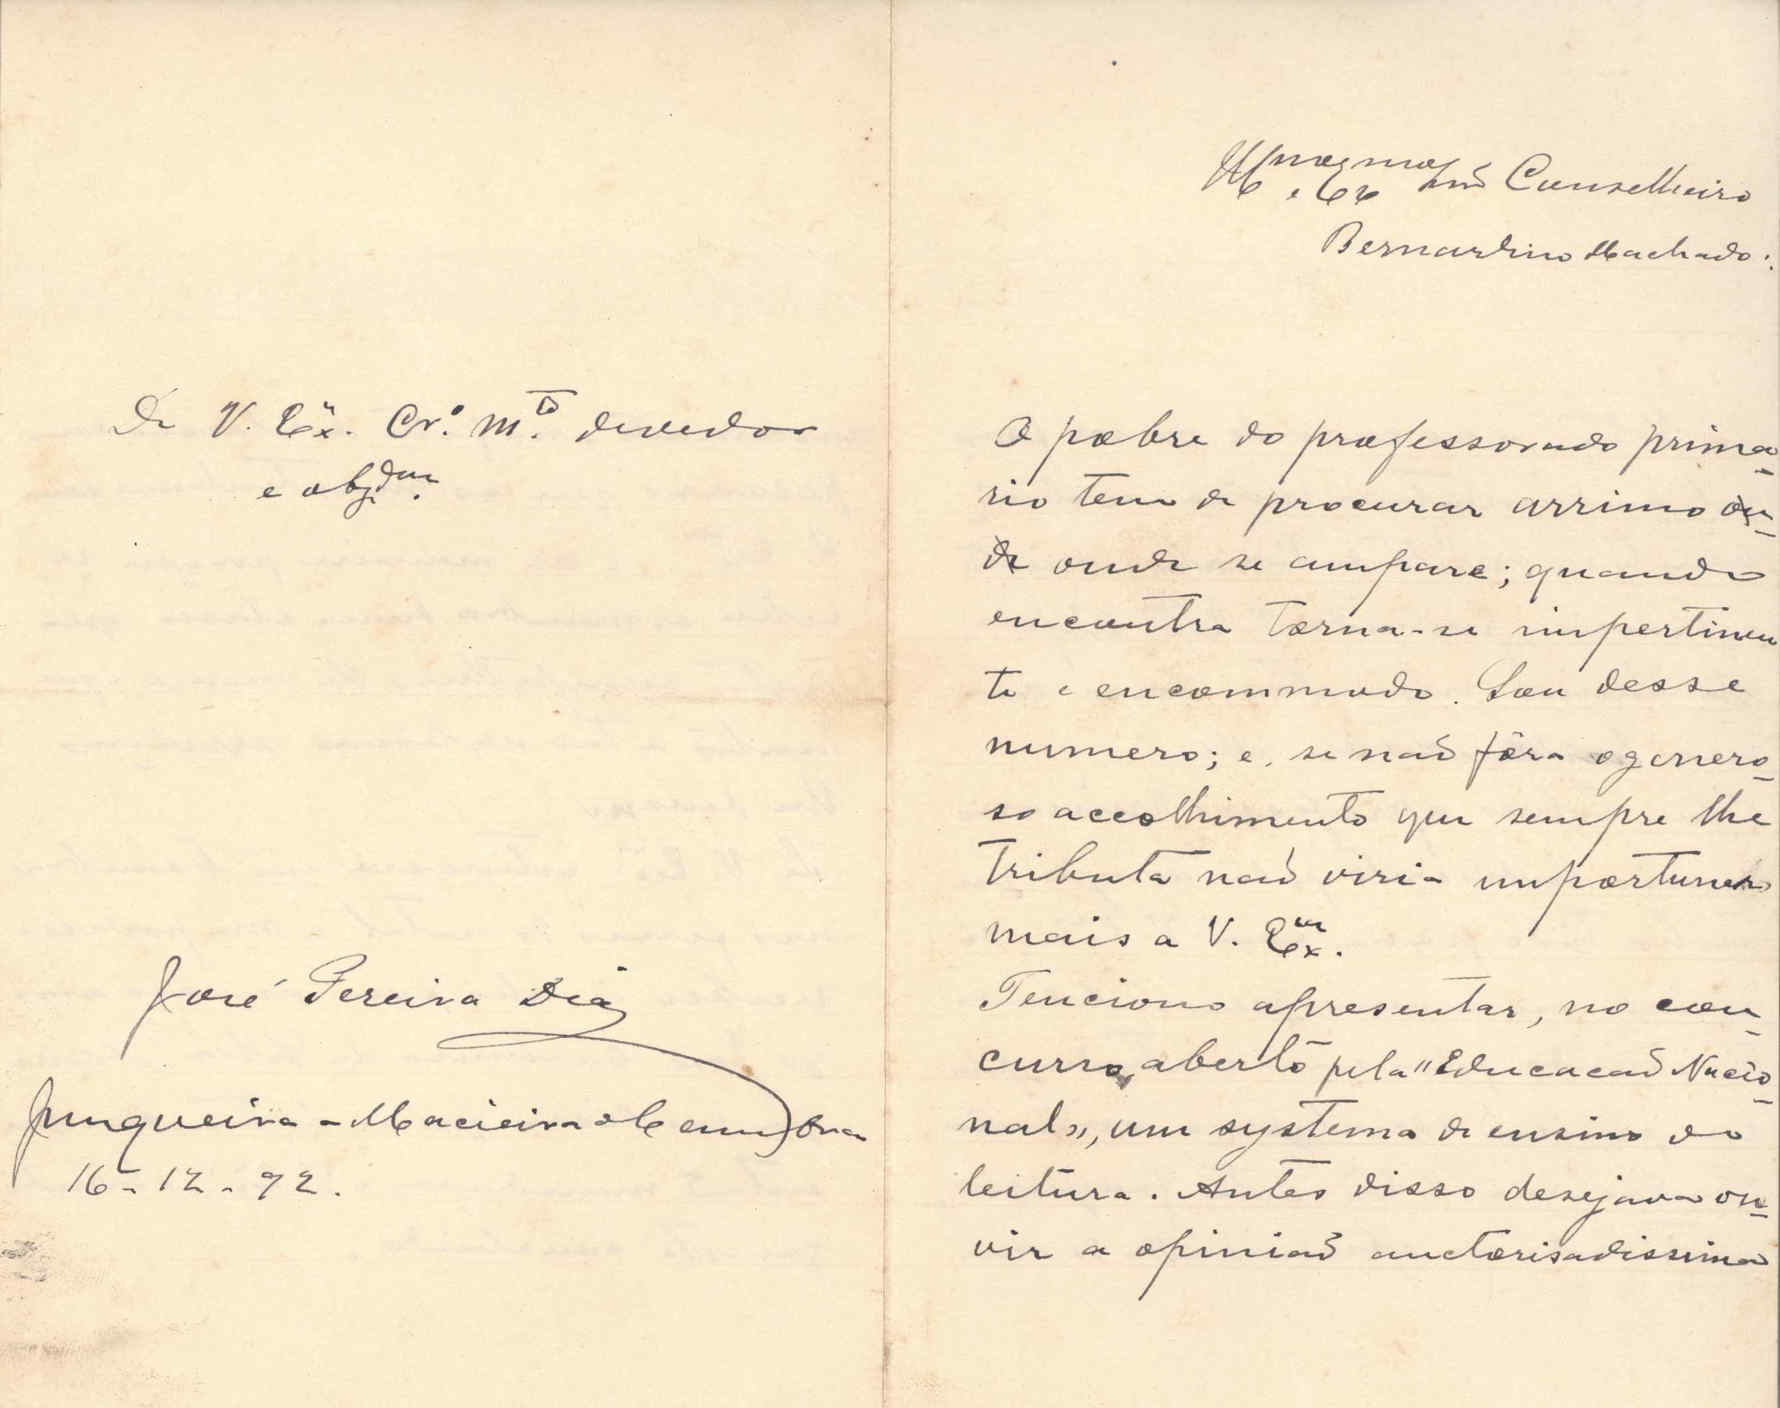 Ill.mo e Ex.mo Snr. Conselheiro
Bernardino Machado:
O pobre do professorado prima-
rio tem de procurar arrimo on-
de onde se ampare; quando
encontra torna-se impertinen
te e encommodo. Sou desse
numero; e, se não fôra o genero-
so accolhimento que sempre lhe
tributa não viria importunar
mais a V. Ex.
Tenciono apresentar, no con-
curso, aberto pela "Educacão Nacio-
nal», um systema de ensino de
leitura. Antes disso desejava ou-
vir a opinião auctorisadissima
De V. Ex.ª Cr.º m.to devedor
e obg.
José Pereira Dias
Junqueira - Macieira de Cambra
16-12-92.